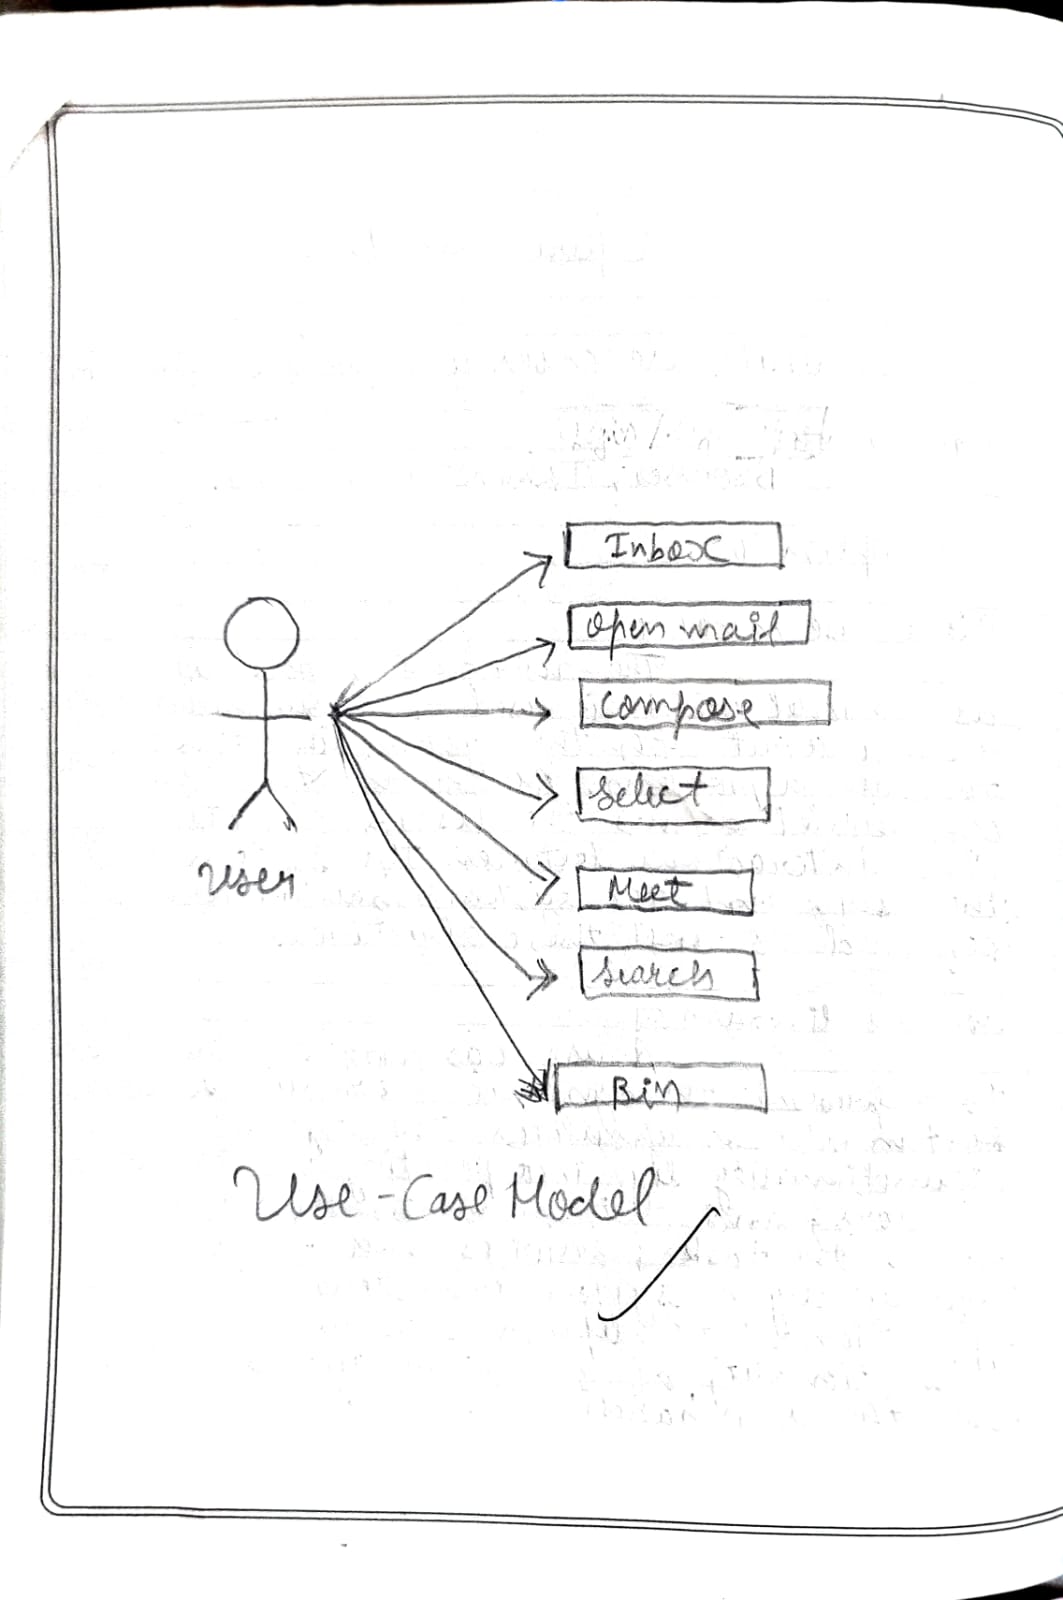 Inbox
open mail
compose
select
Meet
search
Bin
User
Use-Case Model